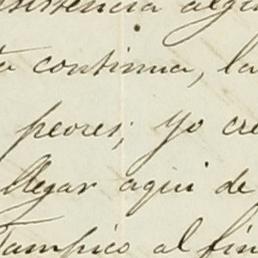 sistencia algu
to continua, la
peores; yo cre
llegar aqui de
Tampico al fin